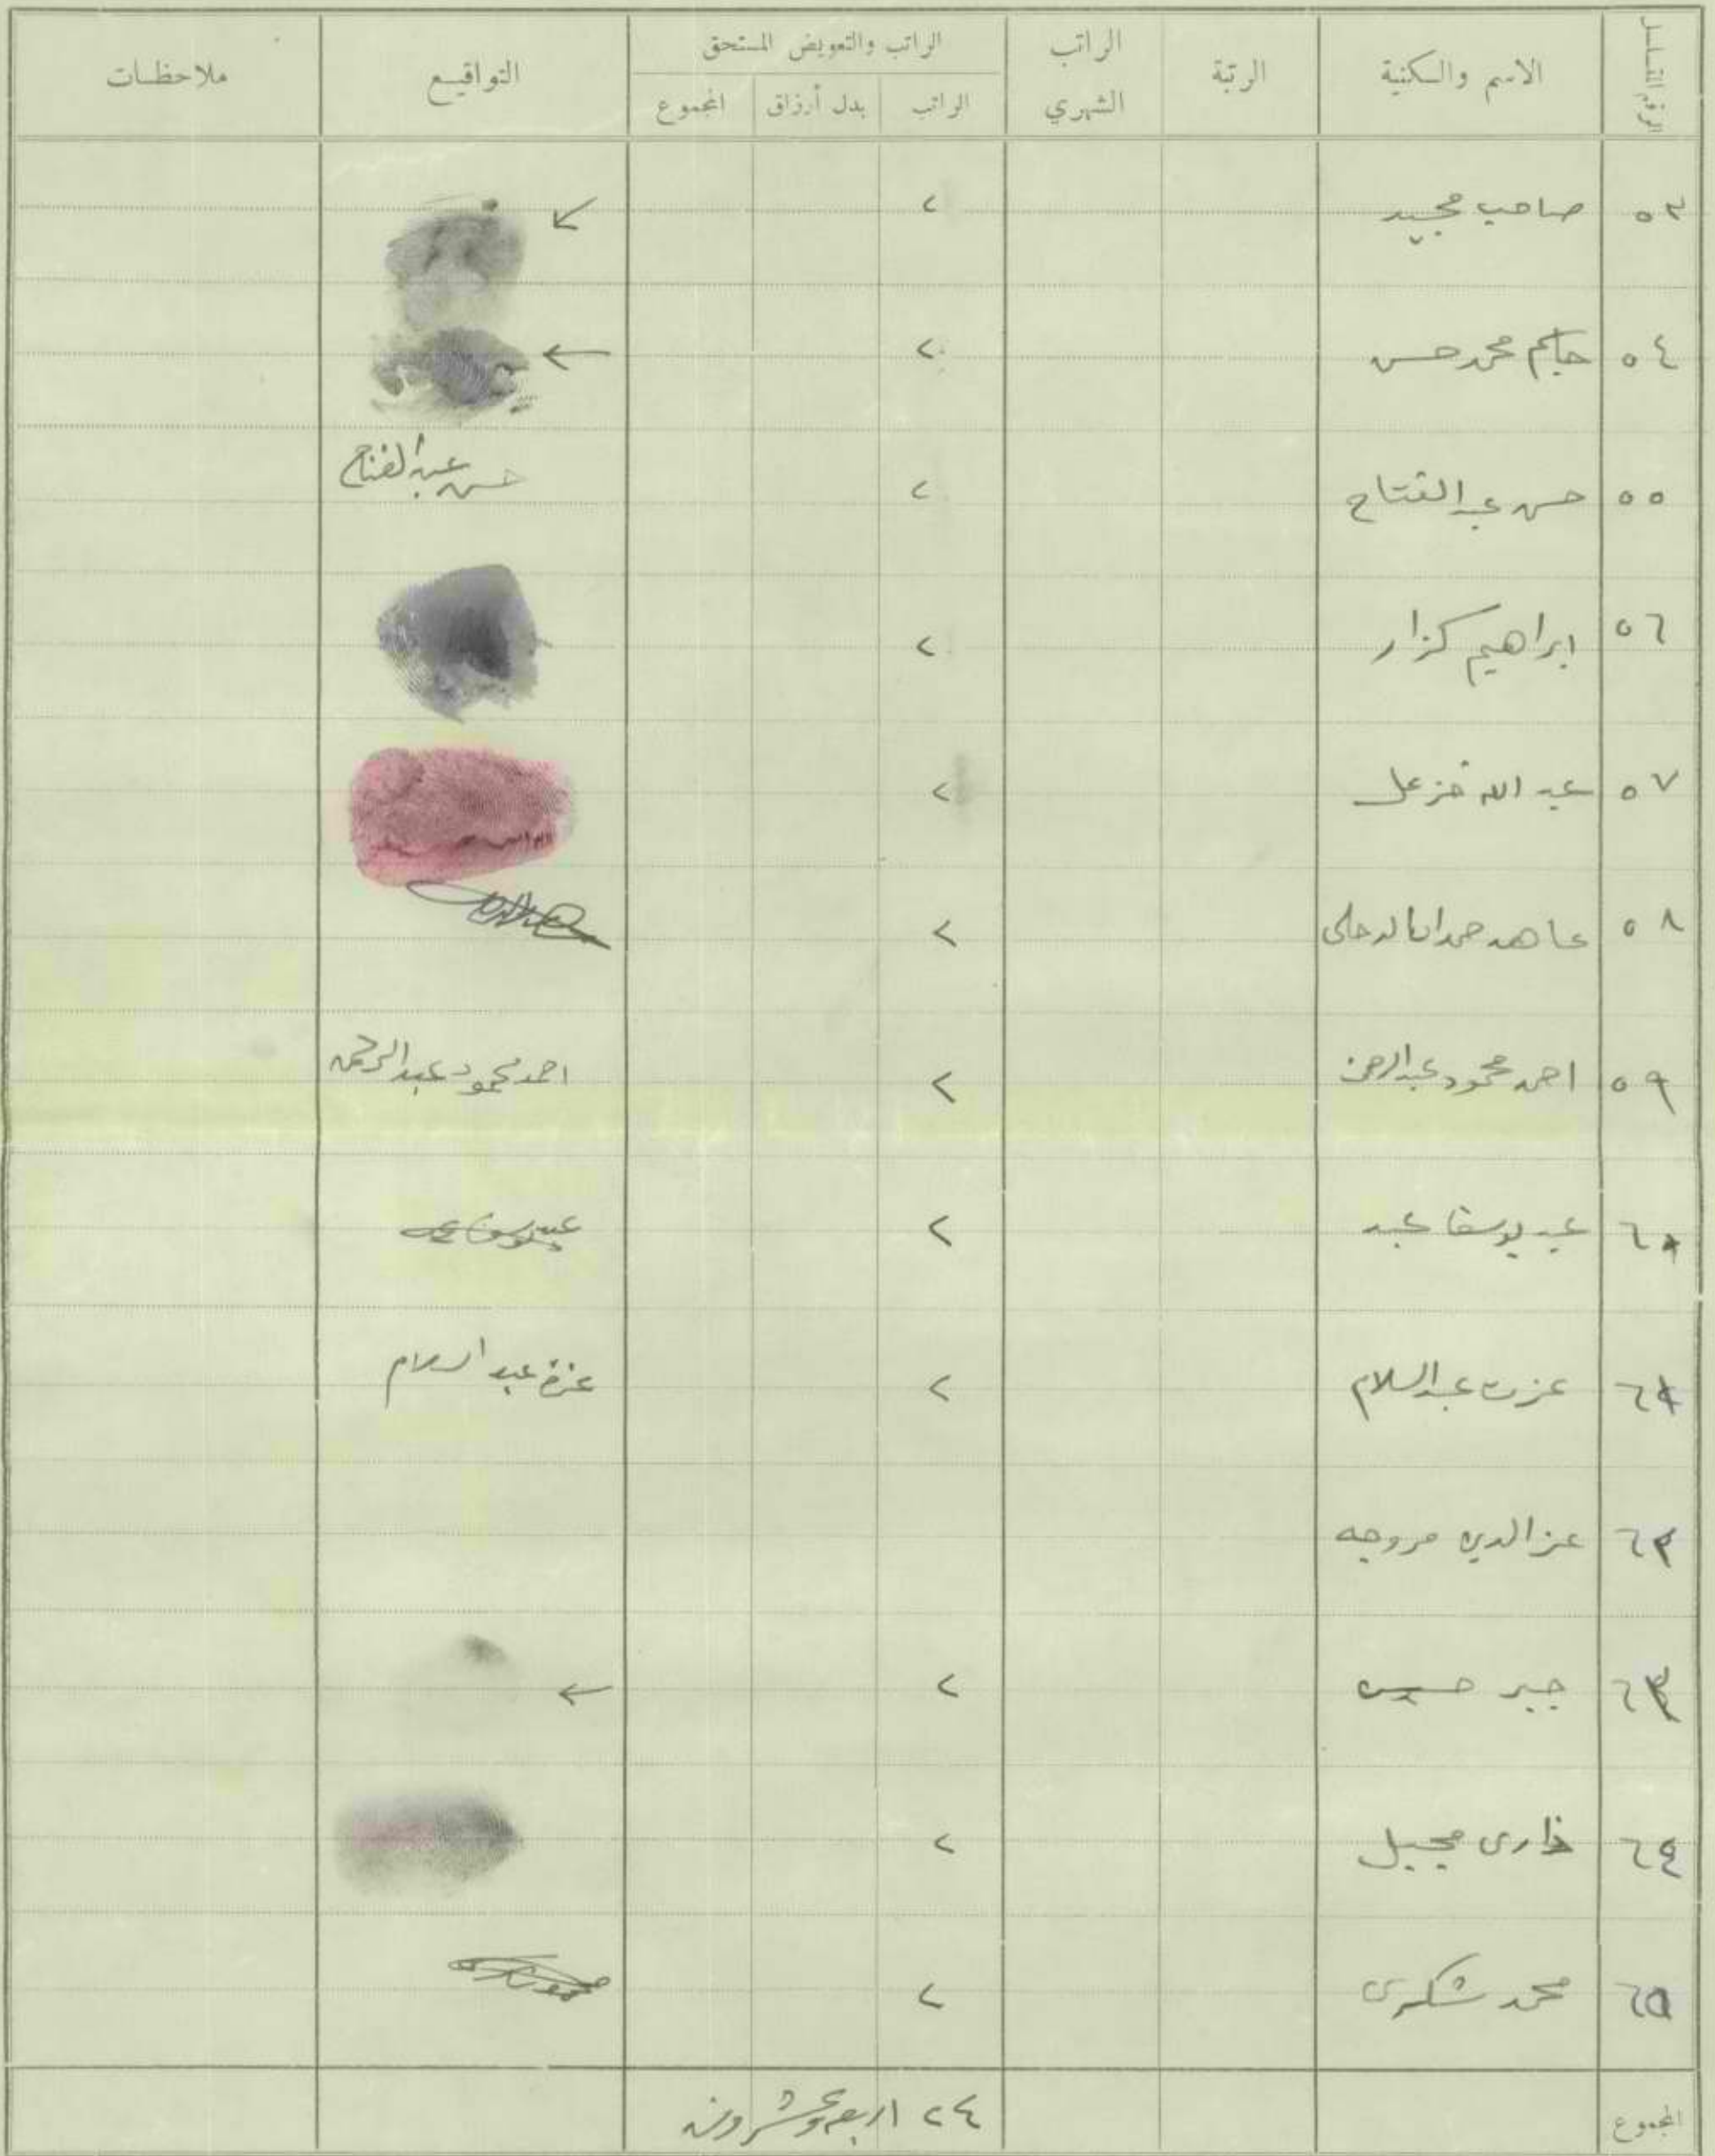 الرقم المتسلسل الاسم والسكنية الرتبة الراتب الشهري الراتب والتعويض المستحق التواقيع ملاحظات
الراتب بدل أرزاق المجموع
٥٣ صاحب مجيد ٢
٥٤ حاكم محمد حسن ٢
٥٥ حسن عبد الفتاح ٢ حسن عبد الفتاح
٥٦ ابراهيم كزار ٢
٥٧ عبد الله خزعل ٢
٥٨ عاهد حمدان ٢
٥٩ احمد محمود عبد الرحمن ٢ احمد محمود عبد الرحمن
٦٠ عيد يوسف عيد ٢
٦١ عزت عبد السلام ٢ عزة عبد السلام
٦٢ عز الدين مروجه
٦٣ جبر حسين ٢
٦٤ ضاري مجبل ٢
٦٥ محمد شكري ٢
المجموع ٢٤ اربعة وعشرون